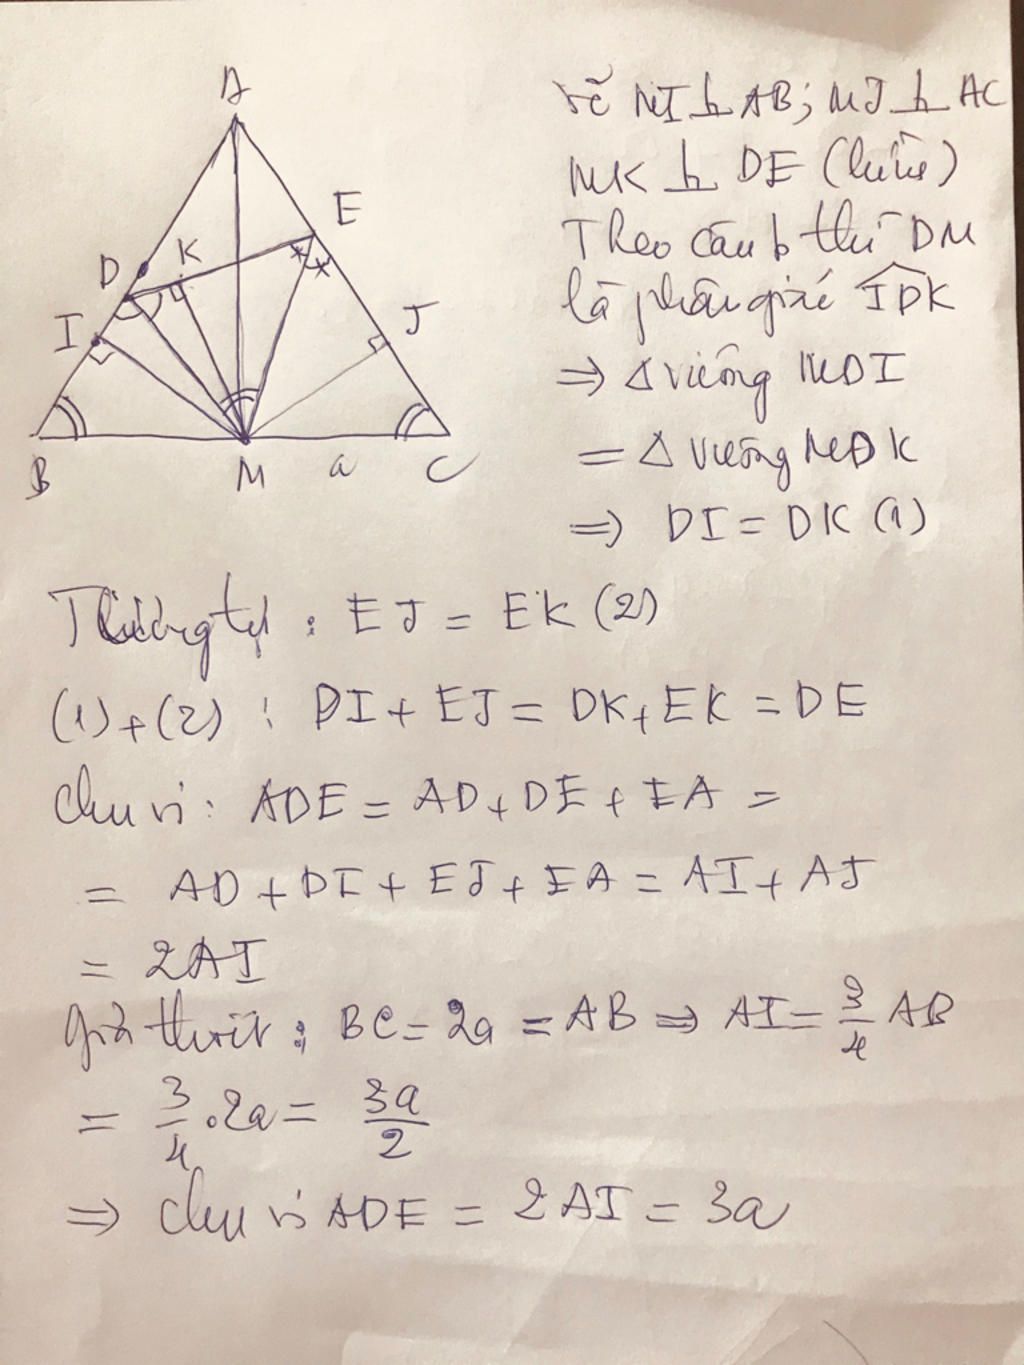 A
E
D
K
I
J
B
M
a
C
vẽ MI ⊥ AB; MJ ⊥ AC
MK ⊥ DE
Theo câu b thì DM
là phân giác IDK
⇒ Δ vuông MDI
= Δ vuông MDK
⇒ DI = DK (1)
Tương tự : EJ = EK (2)
(1)+(2) : DI + EJ = DK + EK = DE
Chu vi : ADE = AD + DE + EA =
= AD + DI + EJ + EA = AI + AJ
= 2AI
giả thiết : BC = 2a = AB ⇒ AI = 3/4 AB
= 3/4 . 2a = 3a/2
⇒ chu vi ADE = 2AI = 3a